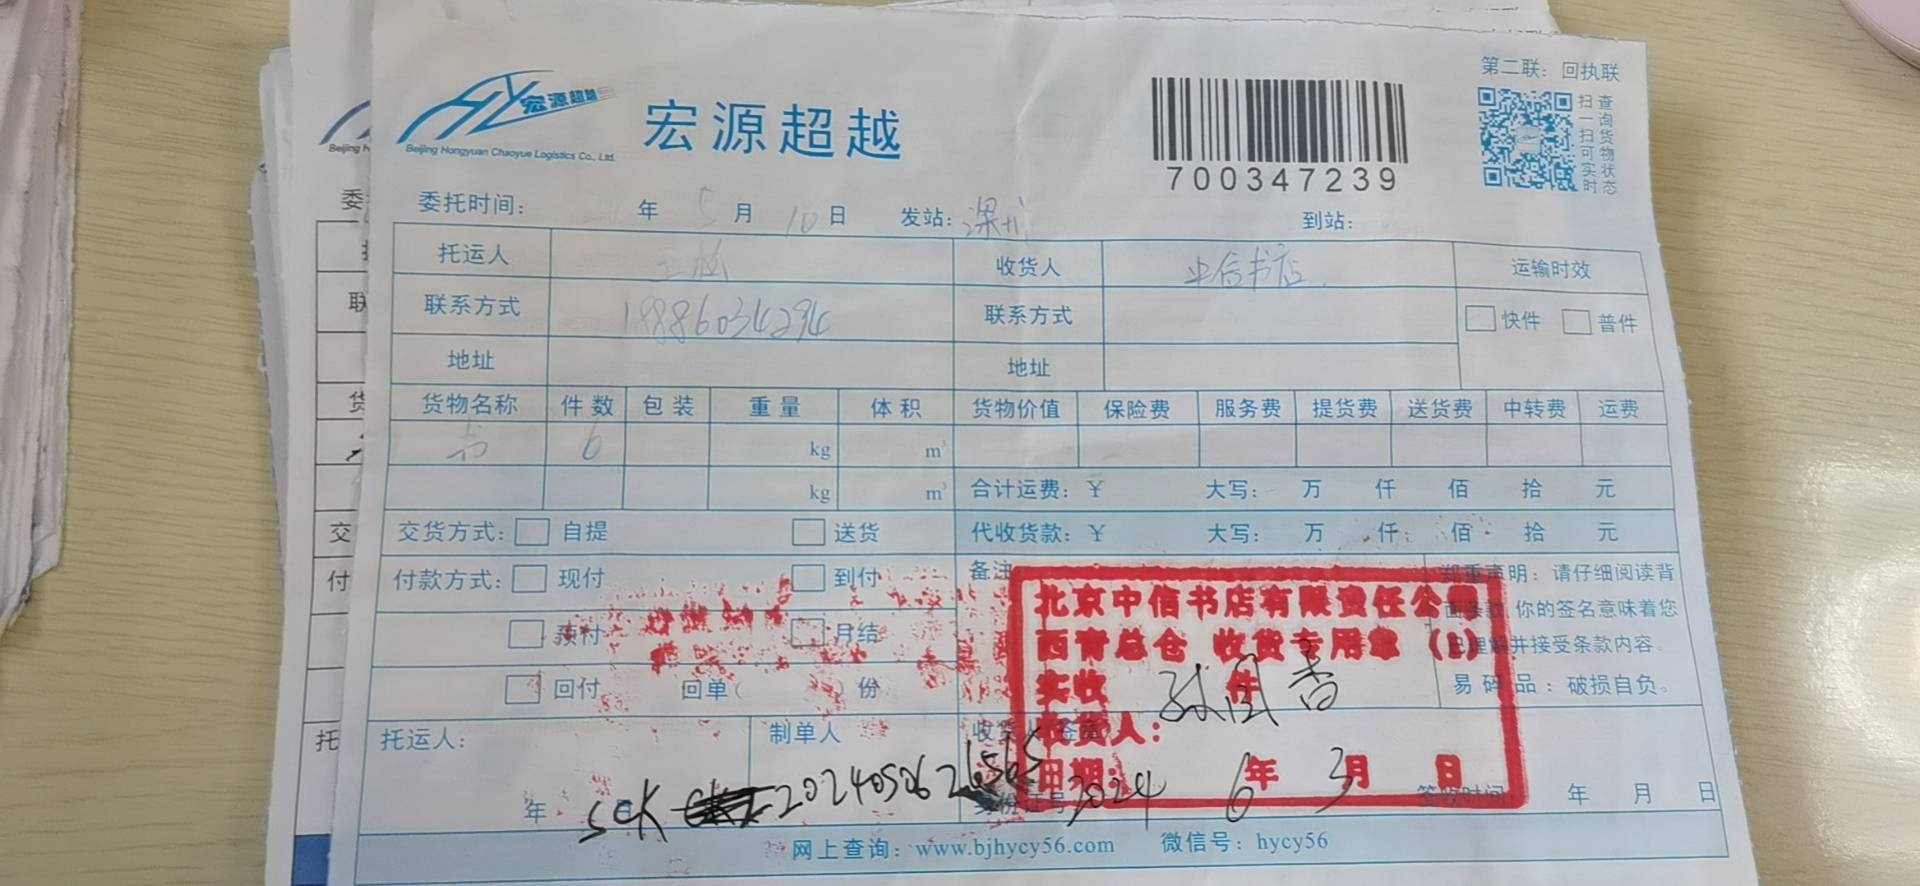 第二联：回执联
宏源超越
Beijing Hongyuan Chaoyue Logistics Co., Ltd.
宏源超越
700347239
扫一扫可实时
查询货物状态
委托时间： 年 5 月 10 日 发站：深圳 到站：
托运人 收货人 中信书店 运输时效
联系方式 18886034294 联系方式 快件 普件
地址 地址
货物名称 件数 包装 重量 体积 货物价值 保险费 服务费 提货费 送货费 中转费 运费
书 6 kg m³
kg m³ 合计运费：￥ 大写： 万 仟 佰 拾 元
交货方式： 自提 送货 代收货款：￥ 大写： 万 仟 佰 拾 元
付款方式： 现付 到付 备注 郑重声明：请仔细阅读背
面条款,你的签名意味着您
预付 月结 已理解并接受条款内容。
回付 回单（ ）份 易碎品：破损自负。
北京中信书店有限责任公司
西青总仓 收货专用章（1）
实收 件
收货人：
日期： 2024 年 6 月 3 日
托运人： 制单人 收货人
年 身份证号 签收时间： 年 月 日
SCK 202405062
网上查询：www.bjhycy56.com 微信号：hycy56
Beijing H